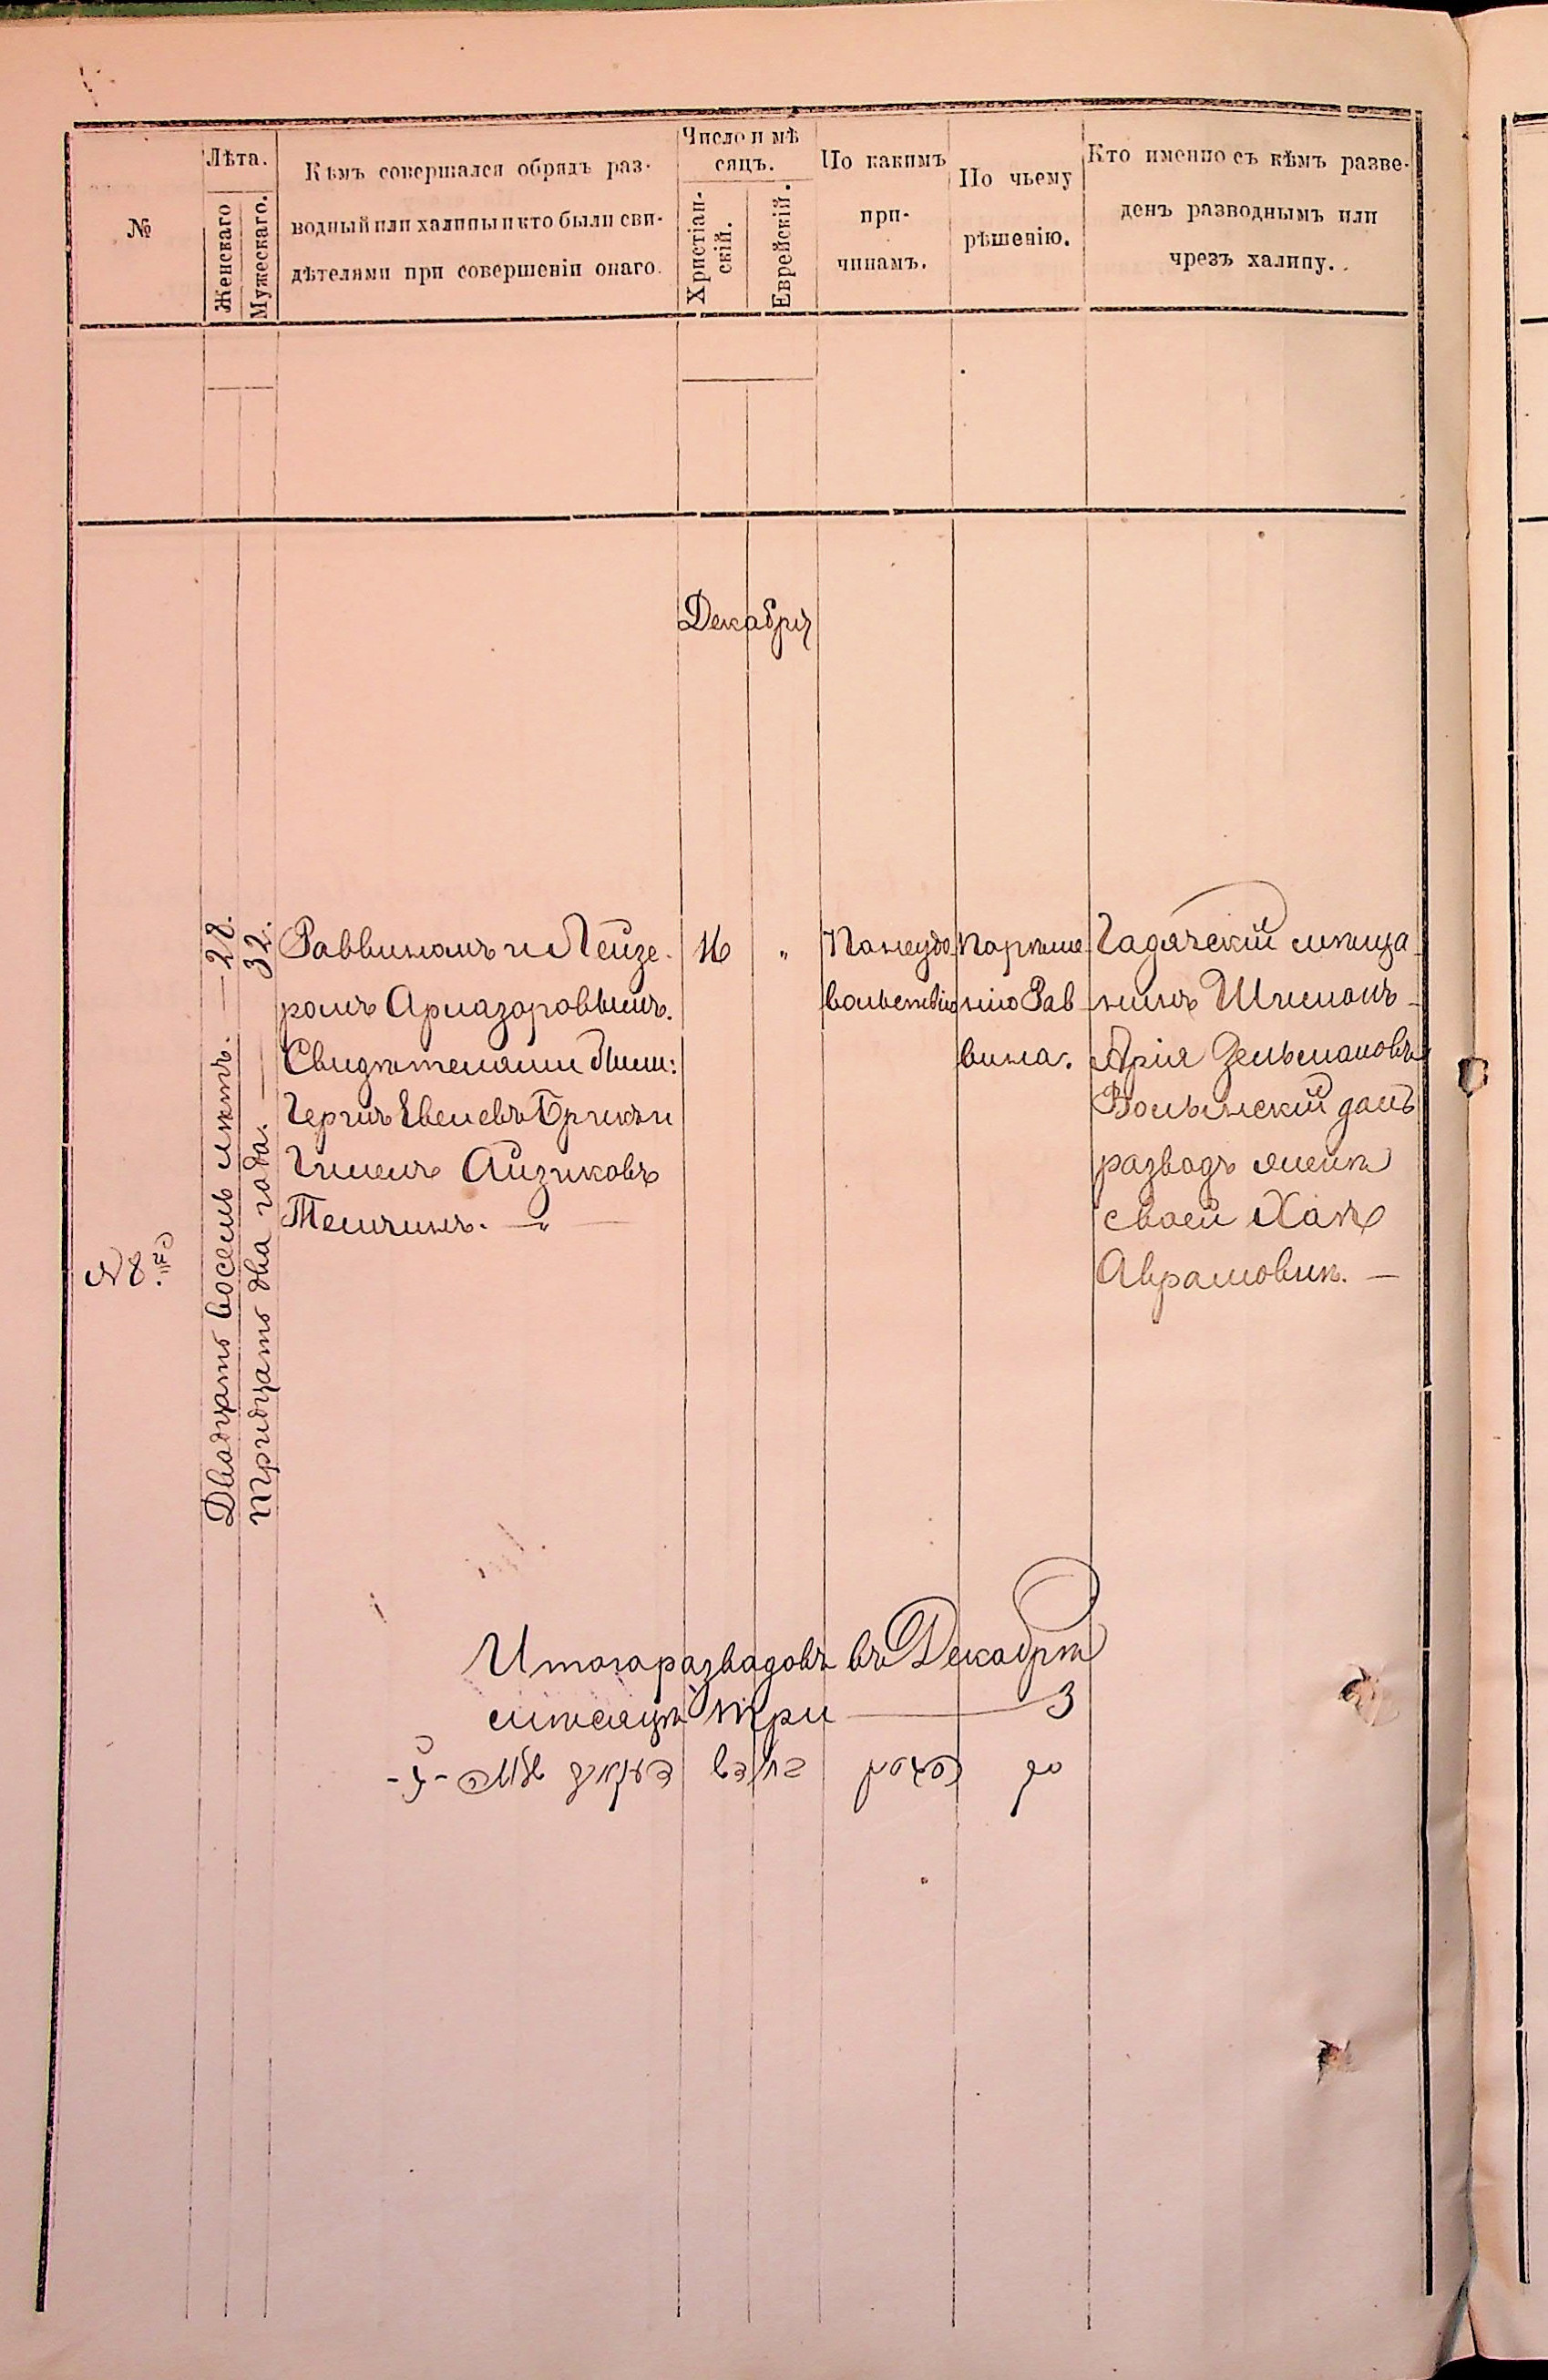 №
Лѣта.
Женскаго
Мужескаго.
Кѣмъ совершался обрядъ раз-
водный или халицы и кто были сви-
дѣтелями при совершеніи онаго.
Число и мѣ
сяцъ.
Христіан-
скій.
Еврейскій.
По какимъ
при-
чинамъ.
По чьему
рѣшенію.
Кто именно съ кѣмъ разве-
денъ разводнымъ или
чрезъ халицу.
Декабря
№ 8.й
Двадцать восемь лѣтъ. — 28.
Тридцать два года. — 32.
Раввиномъ и Лейзе-
ромъ
Свидѣтелями были:
Айзиковъ
16
"
По неудо-
вольствію
По рѣше-
нію Рав
вина.
Гадячскій мѣща-
нинъ Шимонъ-
Арія Зельмановъ
Волынскій далъ
разводъ женѣ
своей Ханѣ
Аврамовнѣ. —
Итого разводовъ въ Декабрѣ
мѣсяцѣ три — 3